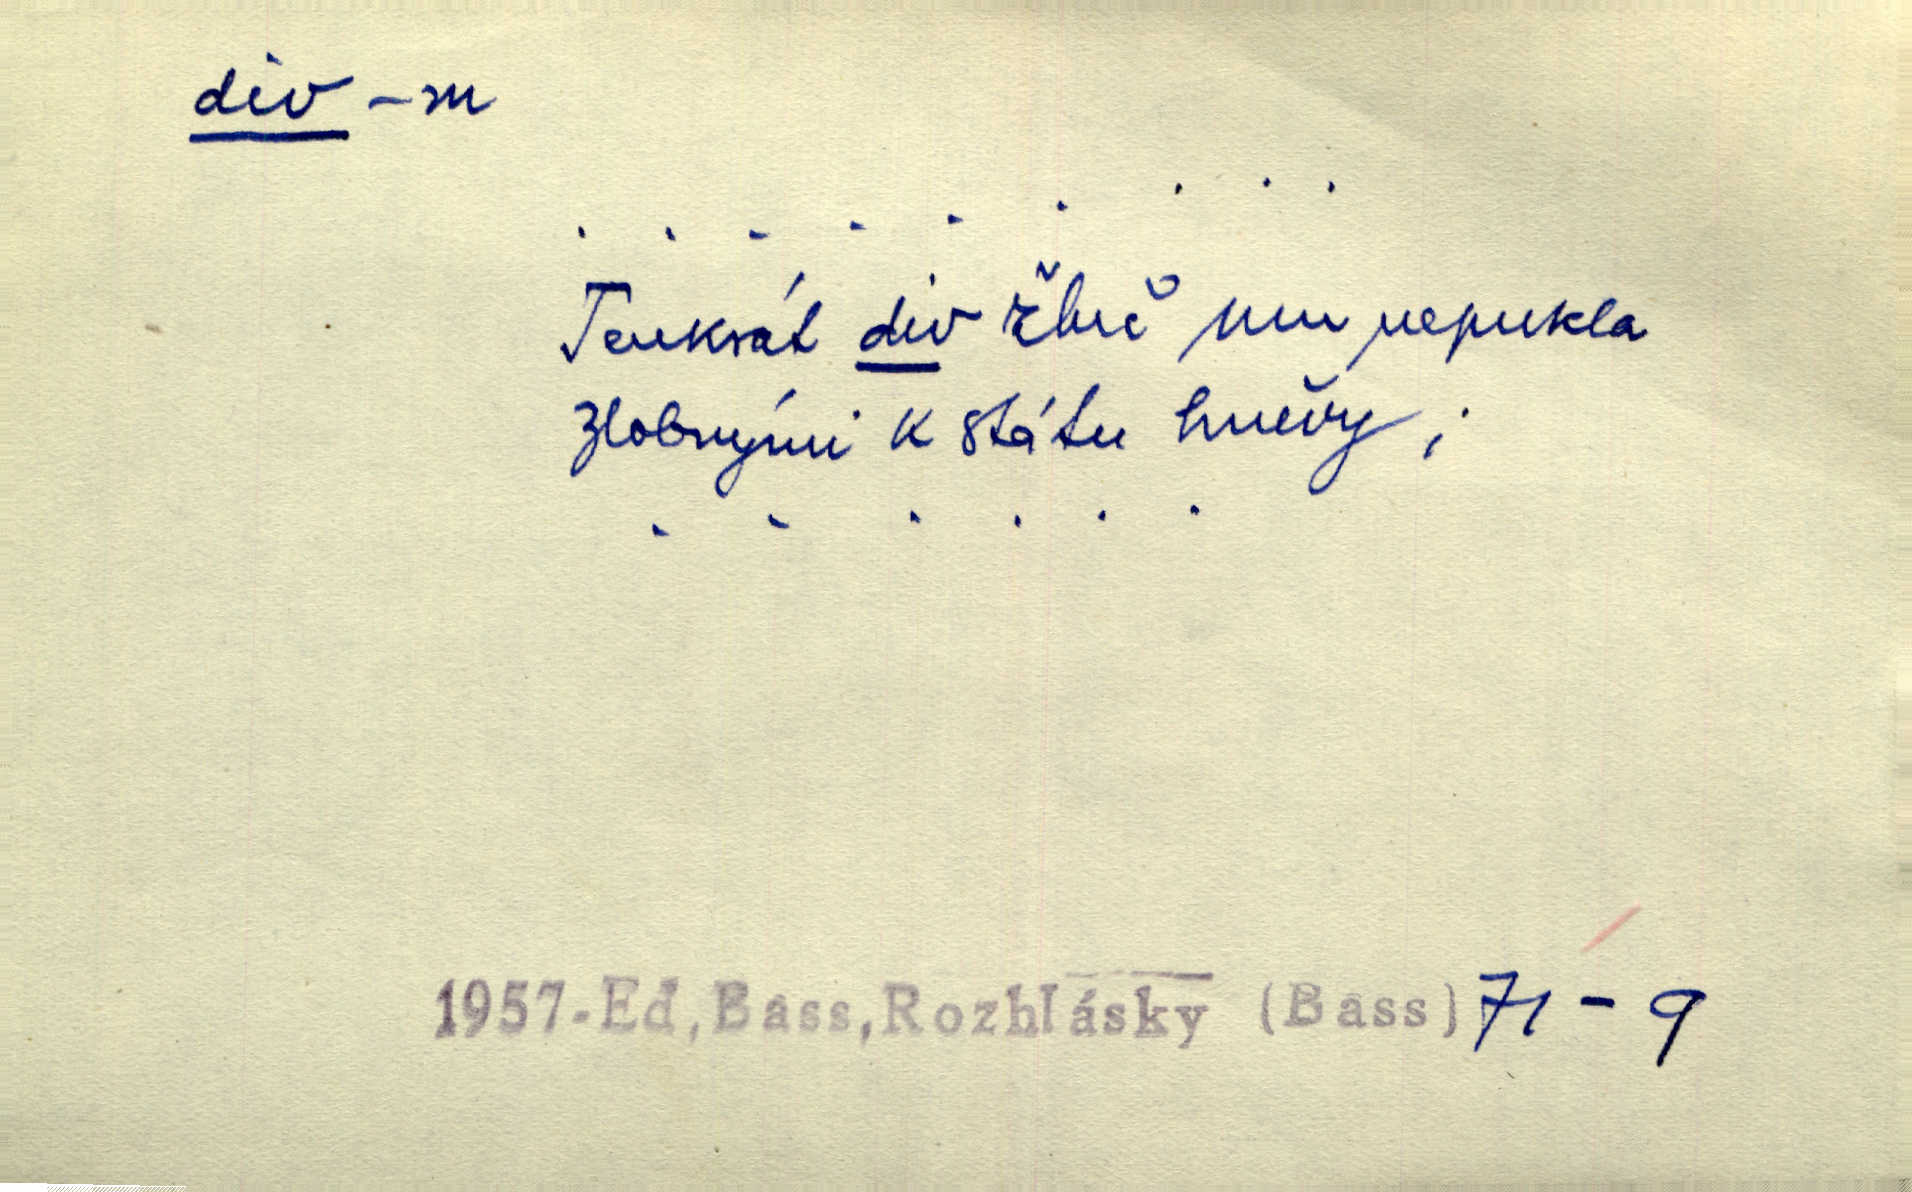 div - m
. . . . . . . . .
Tenkrát div žluč mu nepukla
zlobnými k státu hněvy;
. . . . . .
1957.Ed,Bass,Rozhlásky (Bass) 71 - 9